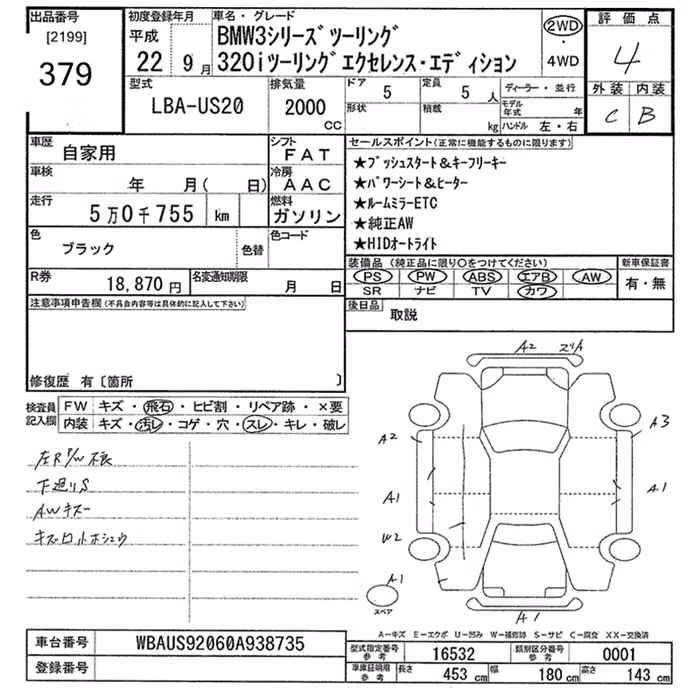 出品番号 初度登録年月 車名・グレード 評価点
[2199] 平成 BMW3シリーズツーリング 2WD
379 22 9月 320iツーリングエクセレンス・エディション ・ 4WD 4
型式 排気量 ドア 5 定員 5人 ディーラー・並行 外装 内装
LBA-US20 2000 CC 形状 積載 kg モデル年式 年 C B
ハンドル 左・右
車歴 自家用 シフト FAT セールスポイント(正常に機能するものに限ります)
車検 年 月( 日) 冷房 AAC ★プッシュスタート&キーフリーキー
走行 5万0千755 km 燃料 ガソリン ★パワーシート&ヒーター
★ルームミラーETC
★純正AW
★HIDオートライト
色 ブラック 色替 色コード
装備品(純正品に限り○をつけてください) 新車保証書
R券 18,870円 名変通知期限 月 日 PS PW ABS エアB AW 有・無
SR ナビ TV カワ
注意事項申告欄(不具合内容等は具体的に記入して下さい) 後日品 取説
修復歴 有〔箇所 〕
検査員記入欄 FW キズ・飛石・ヒビ割・リペア跡・×要
内装 キズ・汚レ・コゲ・穴・スレ・キレ・破レ
下廻りS
AWキズー
A2
A2 A3
A1 A1
W2
A1
スペア
A1
A-キズ E-エクボ U-凹み W-補修跡 S-サビ C-腐食 XX-交換済
車台番号 WBAUS92060A938735 型式指定番号 参考 16532 類別区分番号 参考 0001
登録番号 車庫証明用 参考 長さ 453 cm 幅 180 cm 高さ 143 cm